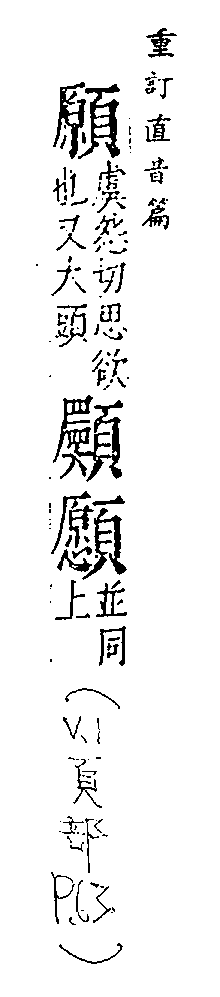 重訂直音篇
願虞怨切思欲
也又大頭
顥願並同
上
(V.1
頁部
P.63
)